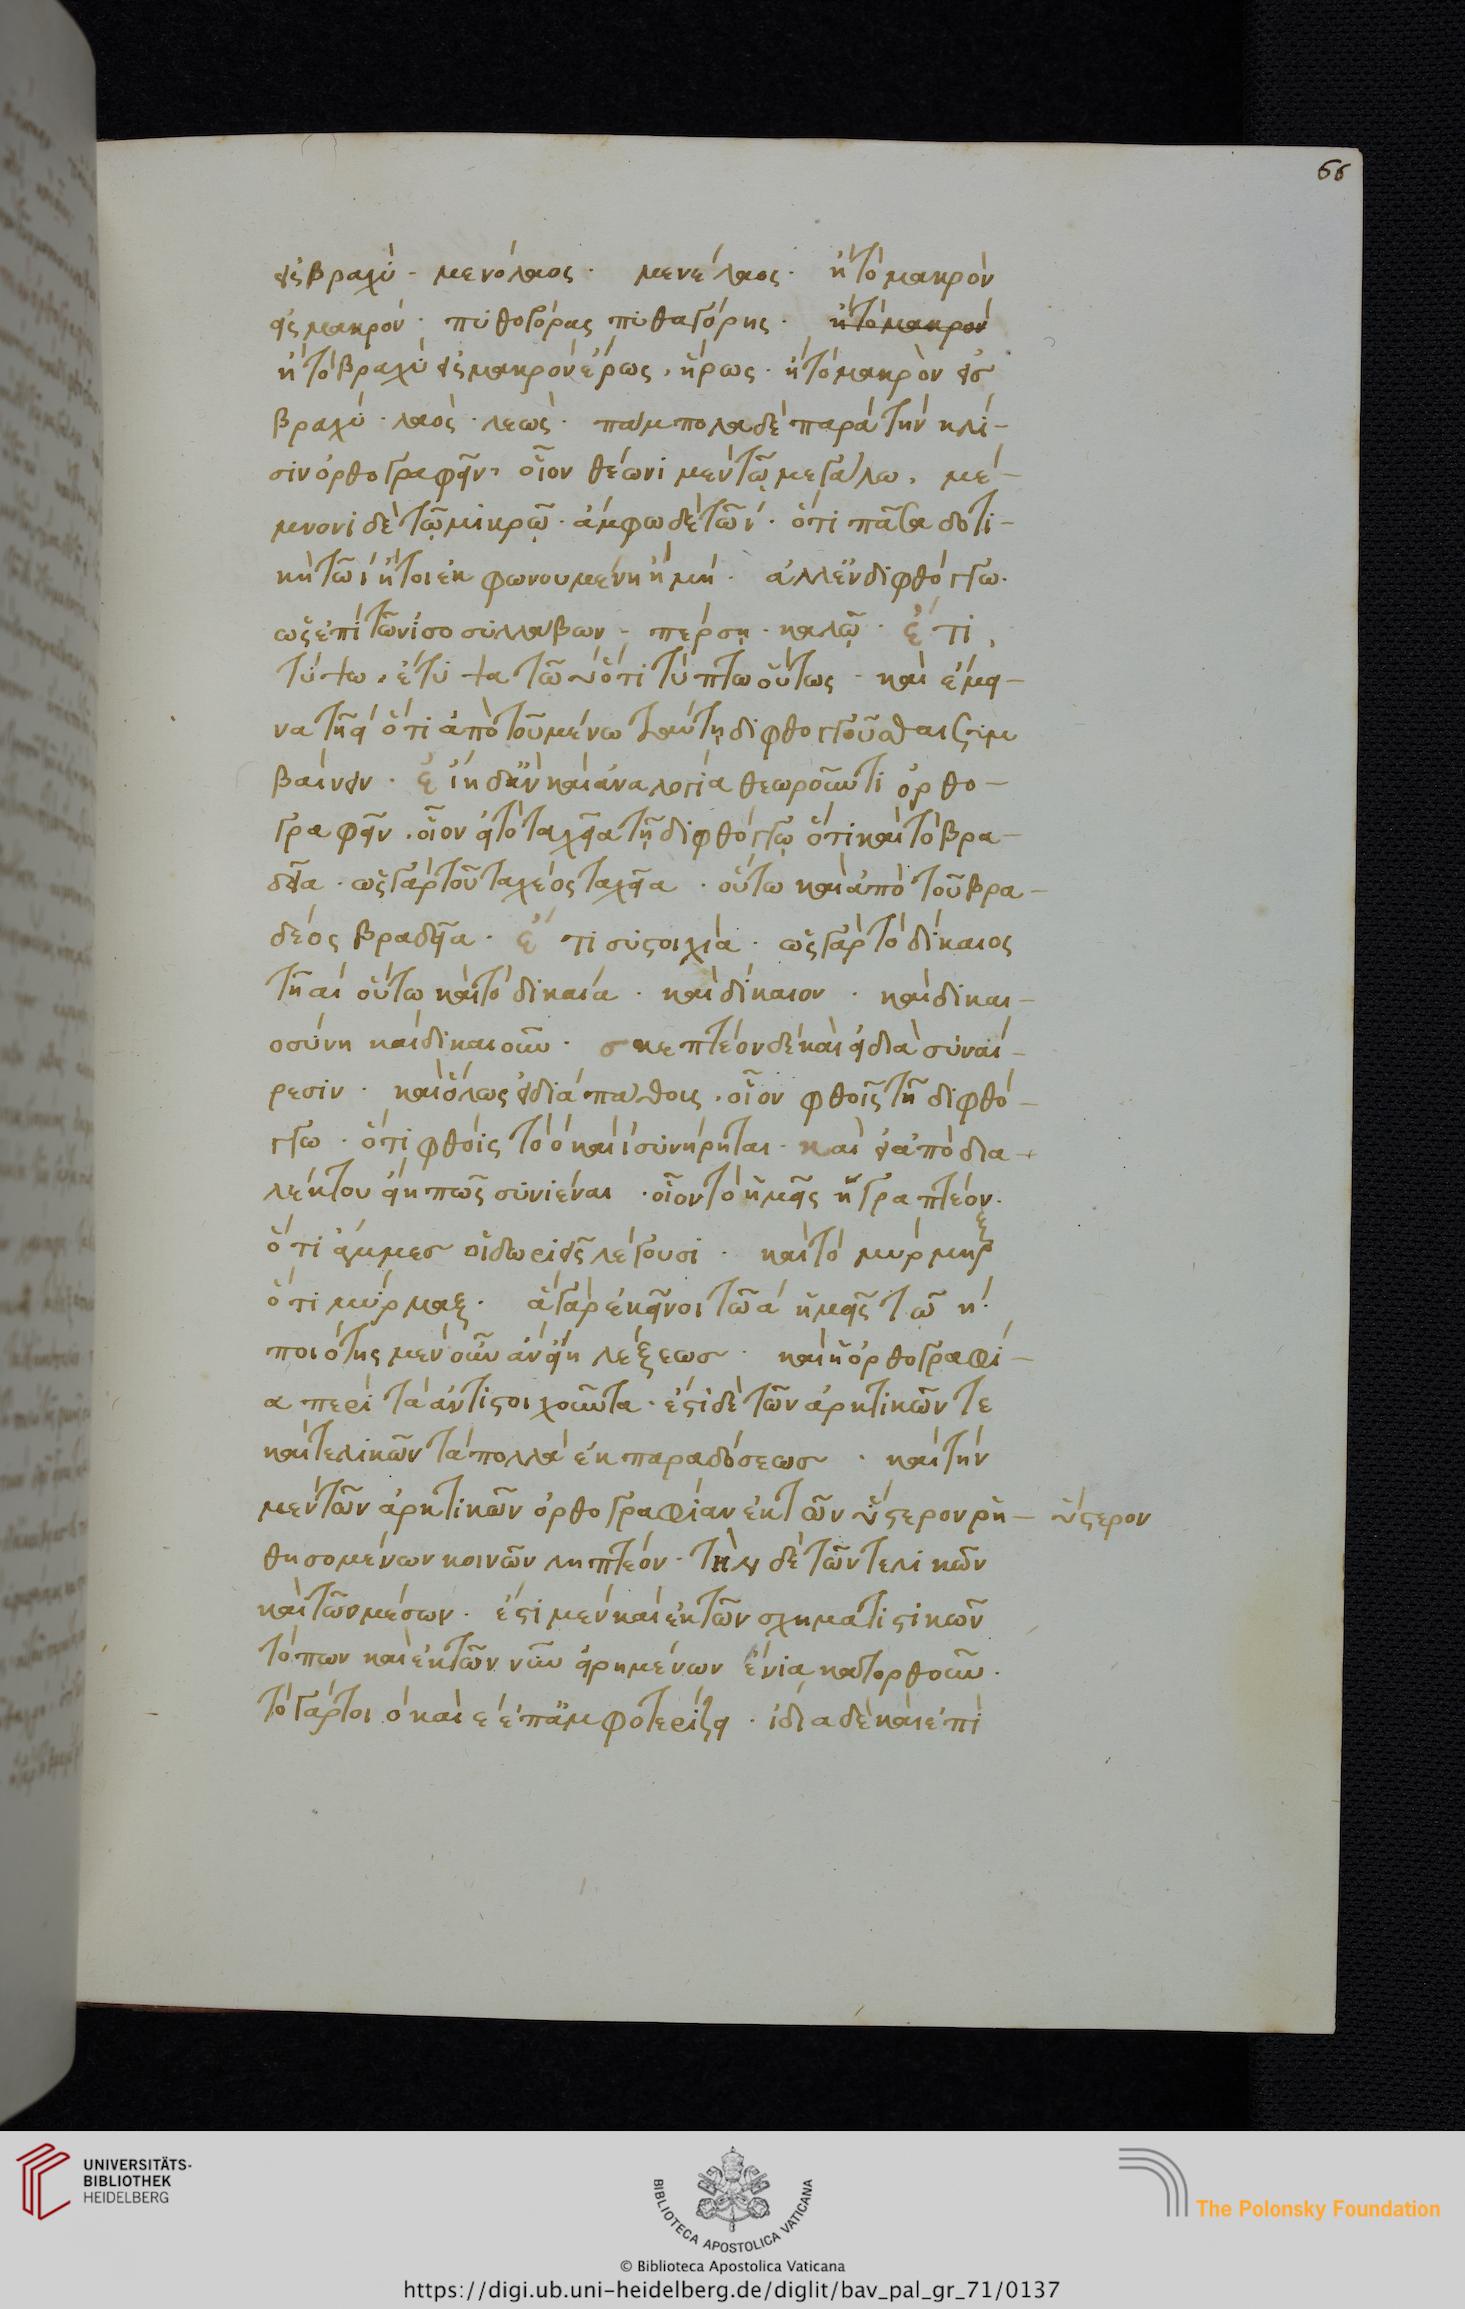 66
εἰς βραχύ - μενόλαος · μενέλαος · ἢ τὸ μακρὸν
εἰς μακρόν · πυθαγόρας πυθαγόρης · ἢ τὸ μακρὸν
ἢ τὸ βραχὺ εἰς μακρὸν ἔρως, ἥρως · ἢ τὸ μακρὸν εἰς
βραχύ · λαὸς · λεώς · πάμπολα δὲ παρὰ τὴν κλί-
σιν ὀρθογραφεῖν, οἷον θέωνι μὲν τῷ μεγάλω, μέ-
μνονι δὲ τῷ μικρῷ · ἄμφω δὲ τῶ ι · ὅτι πᾶσα δοτι-
κὴ τῶ ι ἤτοι ἐκφωνουμένη ἢ μή · ἀλλ' ἐν διφθόγγω ·
ὡς ἐπὶ τῶν ἰσοσυλλάβων - πέρσῃ · καλῷ · ἔτι,
τύψω, ἔτυψα τῶ υ ὅτι τύπτω οὕτως · καὶ ἔμει-
να τῆ ει ὅτι ἀπὸ τοῦ μένω ταύτῃ διφθογγοῦσθαι συμ
βαίνειν · ἔτι δ' ἂν καὶ ἀναλογία θεωροῦντι ὀρθο-
γραφεῖν · οἷον εἰ τὸ ταχεῖα τῇ διφθόγγῳ ὅτι καὶ τὸ βρα-
δεῖα · ὡς γὰρ τοῦ ταχέος ταχεῖα · οὕτω καὶ ἀπὸ τοῦ βρα-
δέος βραδεῖα · ἔτι συστοιχία · ὡς γὰρ τὸ δίκαιος
τῆ αι οὕτω καὶ τὸ δικαία · καὶ δίκαιον · καὶ δικαι-
οσύνη καὶ δικαιοῦν · σκεπτέον δὲ καὶ εἰ διὰ συναί-
ρεσιν · καὶ ὅλως εἰ διὰ πάθος, οἷον φθοῖς τῆ διφθό-
γγω · ὅτι φθόϊς τὸ ο καὶ ι συνήρηται · καὶ εἰ ἀπὸ δια-
λέκτου εἴη πως συνιέναι · οἷον τὸ ἡμεῖς η γραπτέον ·
ὅτι ἄμμες οἱ δωριεῖς λέγουσι · καὶ τὸ μύρμηξ
ὅτι μύρμαξ · ἃ γὰρ ἐκεῖνοι τῶ α ἡμεῖς τῶ η ·
ποιότης μὲν οὖν ἂν εἴη λέξεως · καὶ ἡ ὀρθογραφί-
α περὶ τὰ ἀντιστοιχοῦντα · ἔστι δὲ τῶν ἀρκτικῶν τε
καὶ τελικῶν τὰ πολλὰ ἐκ παραδόσεως · καὶ τὴν
μὲν τῶν ἀρκτικῶν ὀρθογραφίαν ἐκ τῶν ὕστερον ῥη- ὕστερον
θησομένων κοινῶν ληπτέον · τὴν δὲ τῶν τελικῶν
καὶ τῶν μέσων · ἔστι μὲν καὶ ἐκ τῶν σχηματιστικῶν
τόπων καὶ ἐκ τῶν νῦν εἰρημένων ἔνια κατορθοῦν ·
τὸ γάρ τοι ο καὶ ε ἐπαμφοτερίζει · ἰδία δὲ καὶ ἐπὶ
UNIVERSITÄTS-
BIBLIOTHEK
HEIDELBERG
BIBLIOTECA APOSTOLICA VATICANA
The Polonsky Foundation
© Biblioteca Apostolica Vaticana
https://digi.ub.uni-heidelberg.de/diglit/bav_pal_gr_71/0137